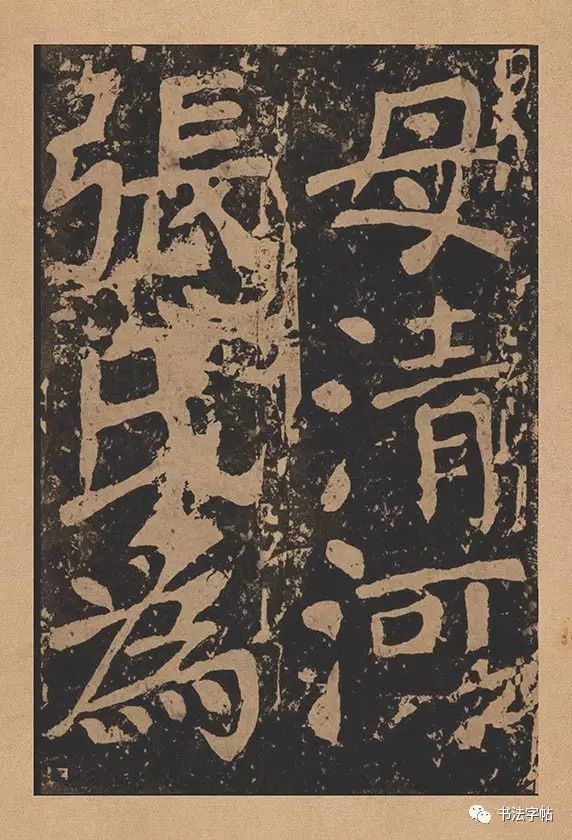 母清河
張氏為
书法字帖